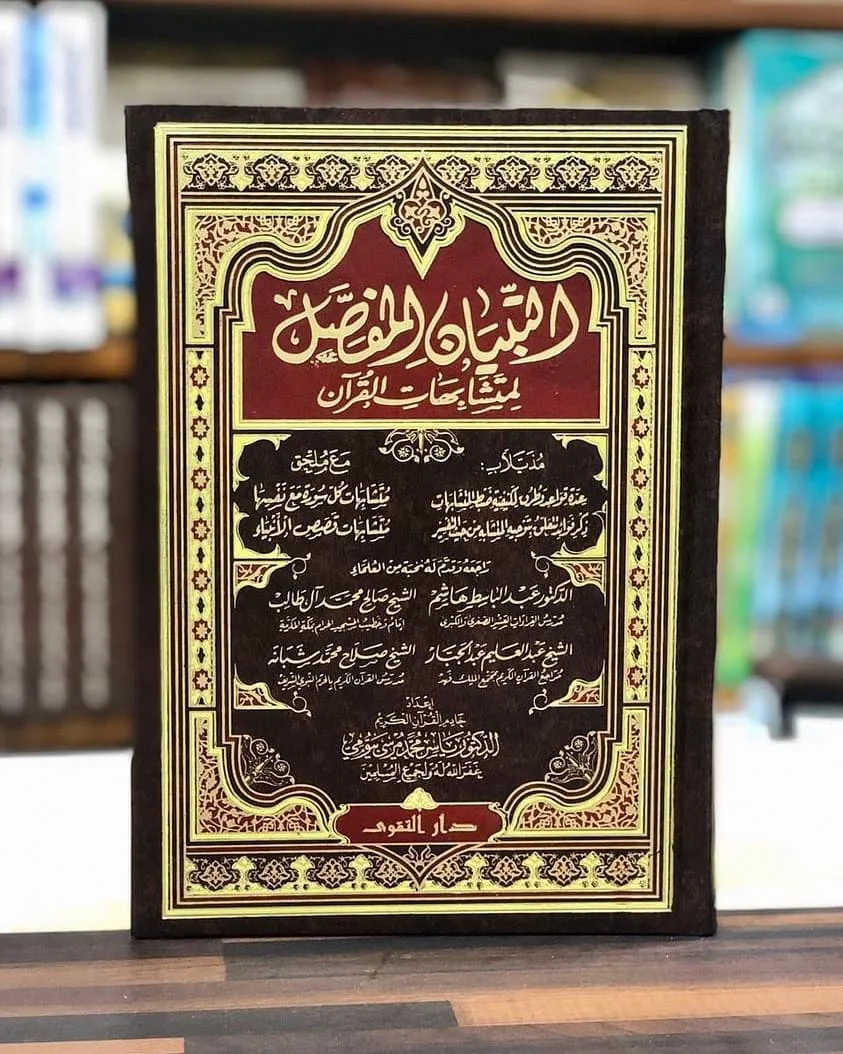 التبيان المفصل
لمتشابهات القرآن
مذيلا ب: مع ملحق
عدة قواعد وطرق لكيفية ضبط المتشابهات متشابهات كل سورة مع نفسها
ذكر فوائد تتعلق بتوجيه المتشابه من حيث التفسير متشابهات قصص الأنبياء
راجعه وقدم له نخبة من العلماء
الدكتور عبد الباسط هاشم الشيخ صالح محمد آل طالب
مدرس القراءات العشر الصغرى والكبرى إمام وخطيب المسجد الحرام بمكة المكرمة
الشيخ عبد العليم عبد الجبار الشيخ صلاح محمد شبانه
مراجع القرآن الكريم بمجمع الملك فهد مدرس القرآن الكريم بالحرم النبوي الشريف
إعداد
خادم القرآن الكريم
الدكتور ياسر محمد مرسى بيومي
غفر الله له ولجميع المسلمين
دار التقوى